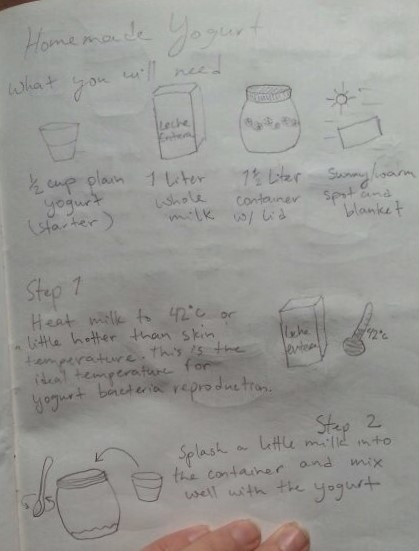 Homemade Yogurt
What you will need
Leche
Entera
1/2 cup plain
yogurt
(starter)
1 Liter
whole
milk
1 1/2 Liter
container
w/ lid
Sunny/warm
spot and
blanket
Step 1
Heat milk to 42°c or
a little hotter than skin
temperature. This is the
ideal temperature for
yogurt bacteria reproduction.
Leche
entera
42°c
Step 2
Splash a little milk into
the container and mix
well with the yogurt